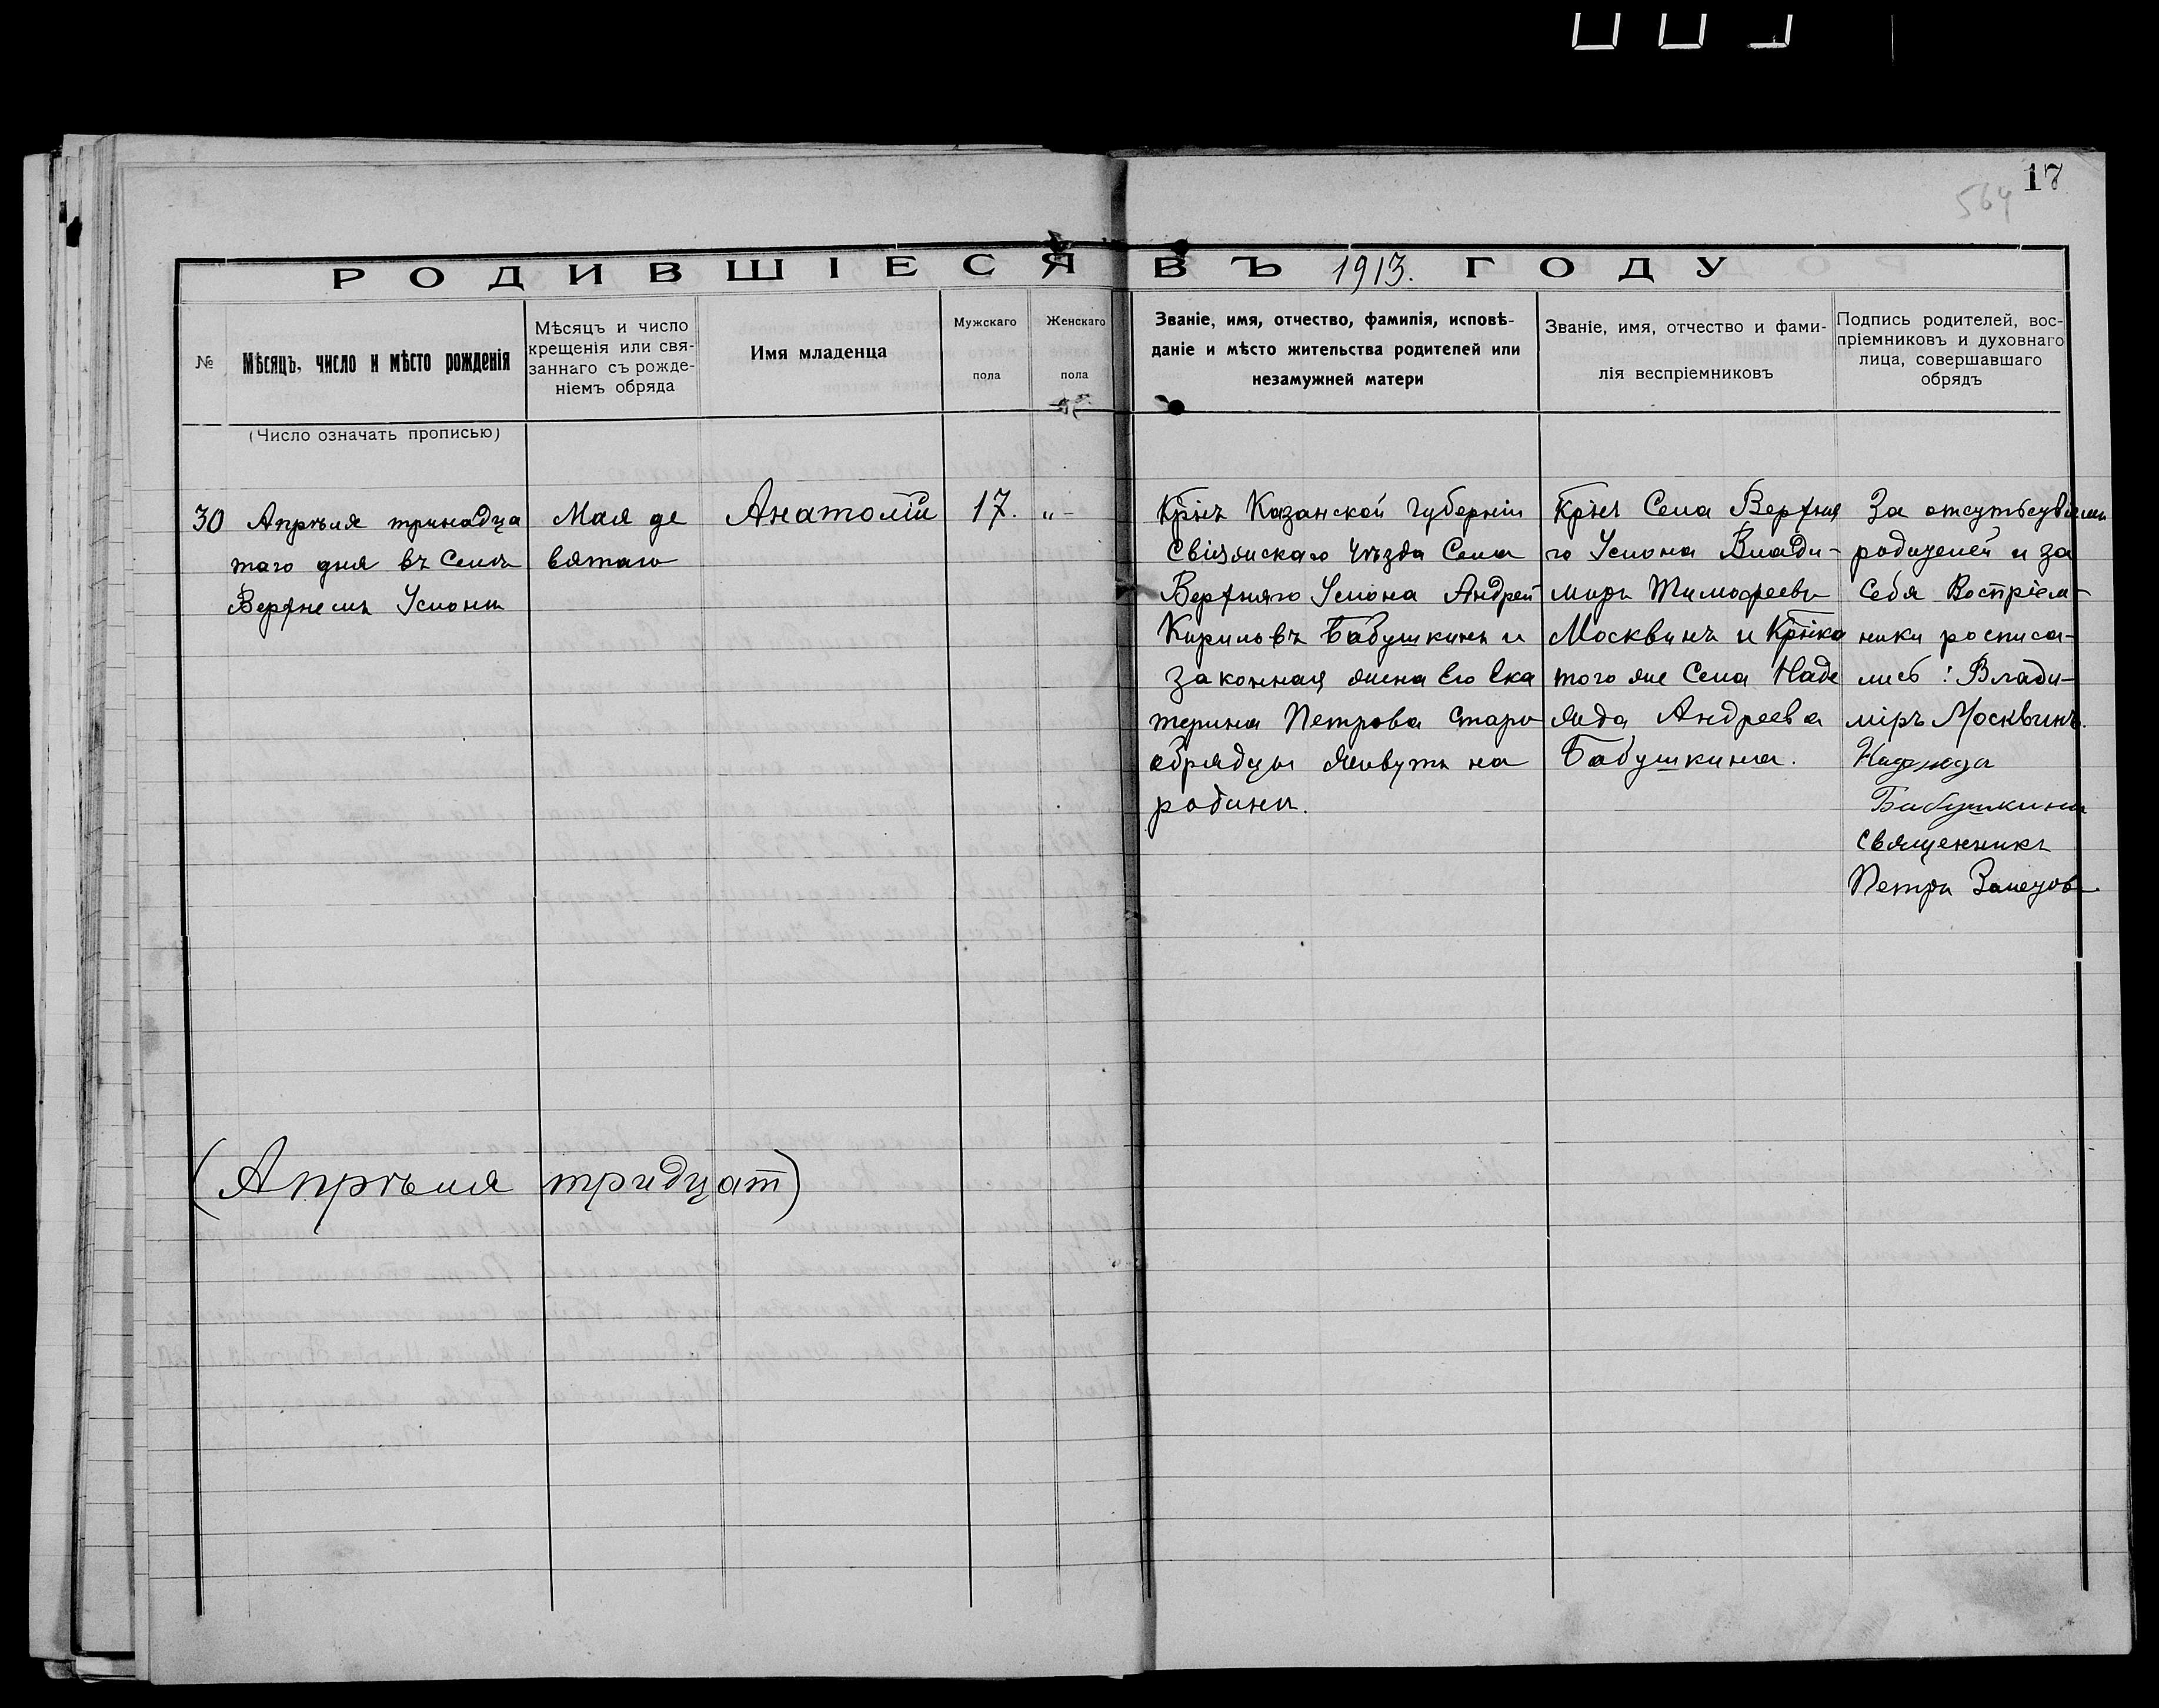 17
564
РОДИВШІЕСЯ ВЪ 1913. ГОДУ
№
Мѣсяцъ, число и мѣсто рожденія
Мѣсяцъ и число
крещенія или свя-
заннаго съ рожде-
ніемъ обряда
Имя младенца
Мужскаго
пола
Женскаго
пола
Званіе, имя, отчество, фамилія, исповѣ-
даніе и мѣсто жительства родителей или
незамужней матери
Званіе, имя, отчество и фами-
лія веспріемниковъ
Подпись родителей, вос-
пріемниковъ и духовнаго
лица, совершавшаго
обрядъ
(Число означать прописью)
30
Апрѣля тринадца
таго дня въ Селѣ
Верхнемъ Услонѣ
Мая де
вятаго
Анатолій
17.
„ -
Крнъ Казанской Губерніи
Свіяжскаго Уѣзда Села
Верхняго Услона Андрей
Кириловъ Бабушкинъ и
законная жена Его Ека
терина Петрова Старо
обрядцы живутъ на
родинѣ.
Крнъ Села Верхня
го Услона Влади-
миръ Тимофеевъ
Москвинъ и Крнка
того же Села Наде
жда Андреева
Бабушкина.
За отсутьсувіем
родителей и за
Себя Воспріем-
ники росписа-
лись: Влади-
міръ Москвинъ.
Надежда
Бабушкина
Священникъ
Петръ Залетовъ.
(Апрѣля тридцат)